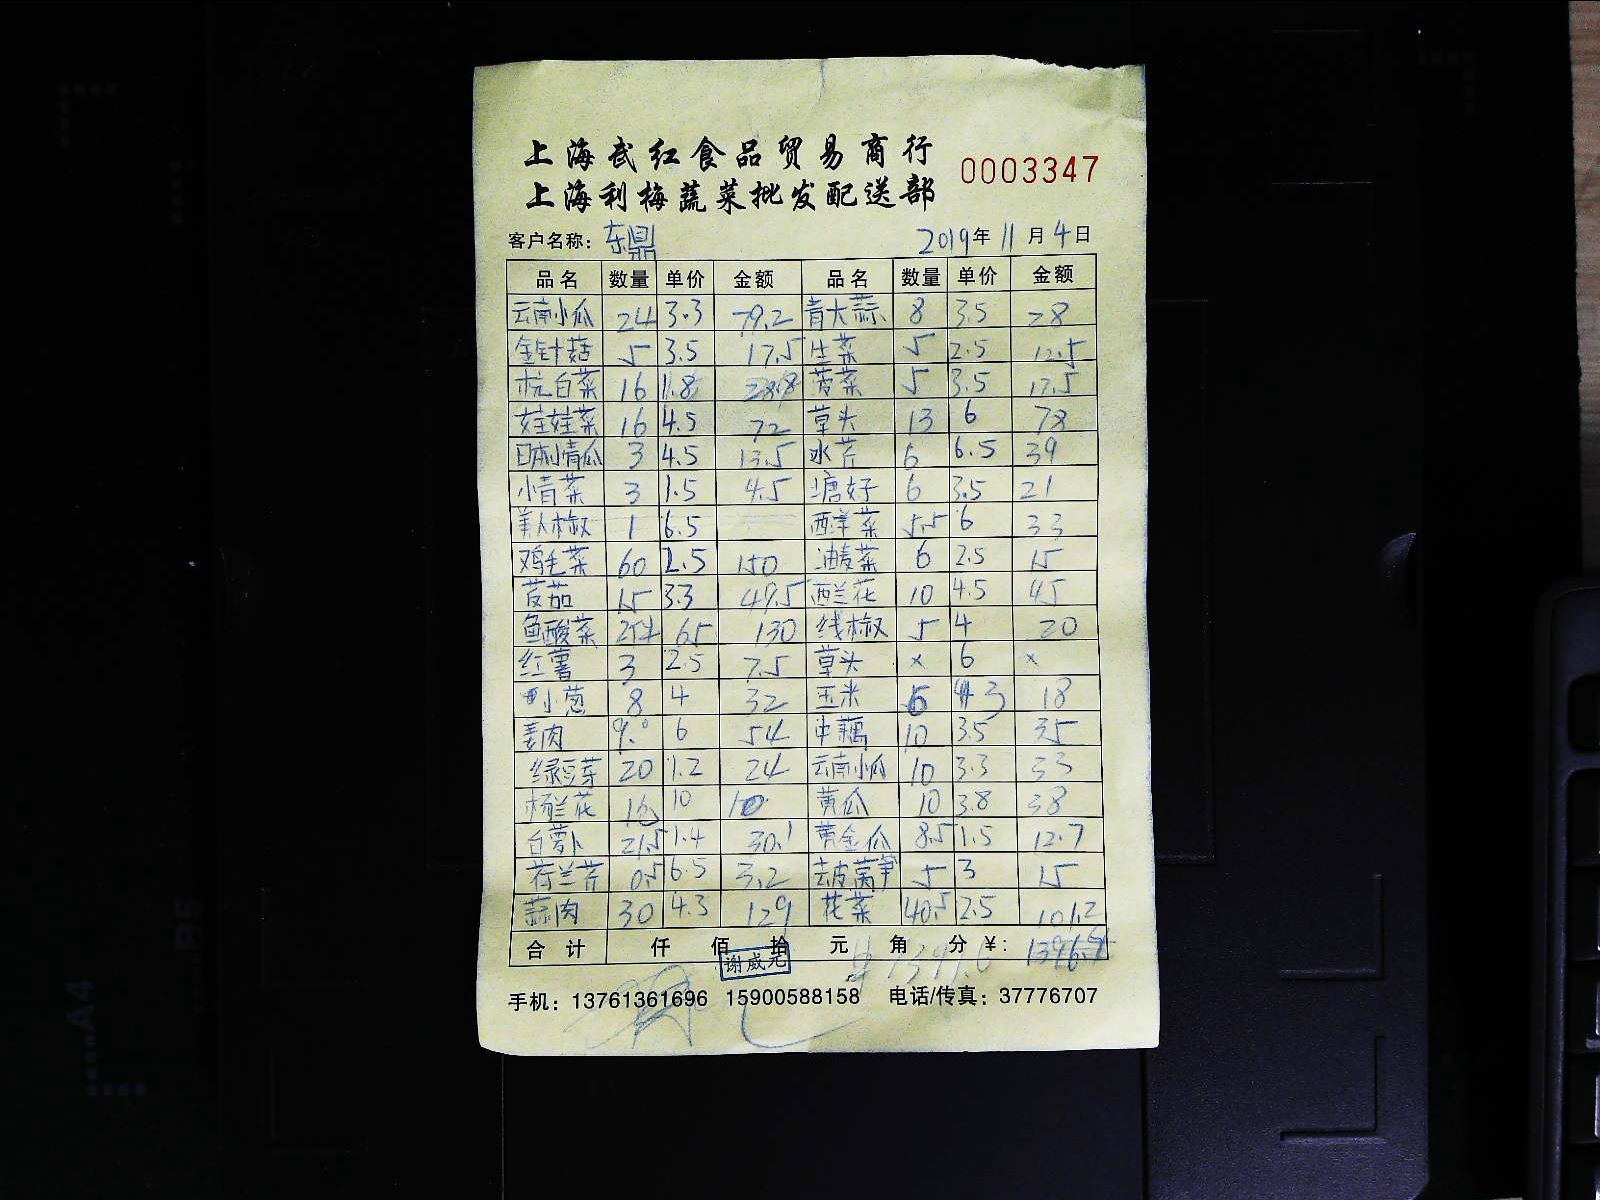 上海武红食品贸易商行
上海利梅蔬菜批发配送部
0003347
客户名称: 东鼎 2019年 11月 4日
品名 数量 单价 金额 品名 数量 单价 金额
云南小瓜 24 3.3 79.2 青大蒜 8 3.5 28
金针菇 5 3.5 17.5 生菜 5 2.5 12.5
杭白菜 16 1.8 28.8 菠菜 5 3.5 17.5
娃娃菜 16 4.5 72 草头 13 6 78
日本小青瓜 3 4.5 13.5 水芹 6 6.5 39
小青菜 3 1.5 4.5 塘好 6 3.5 21
美人椒 1 6.5 西洋菜 5.5 6 33
鸡毛菜 60 2.5 150 油麦菜 6 2.5 15
15 3.3 49.5 西兰花 10 4.5 45
鱼酸菜 2件 65 130 线椒 5 4 20
红薯 3 2.5 7.5 草头 × 6 ×
小葱 8 4 32 玉米 6 3 18
姜肉 9.0 6 54 中藕 10 3.5 35
绿豆芽 20 1.2 24 云南小瓜 10 3.3 33
杨兰花 10 10 黄瓜 10 3.8 38
白萝卜 21.5 1.4 30.1 黄金瓜 8.5 1.5 12.7
荷兰芹 0.5 6.5 3.2 去皮莴笋 5 3 15
蒜肉 30 4.3 129 花菜 40.5 2.5 101.2
合计 仟 佰 拾 元 角 分 ¥:
谢威光
手机: 13761361696 15900588158 电话/传真: 37776707